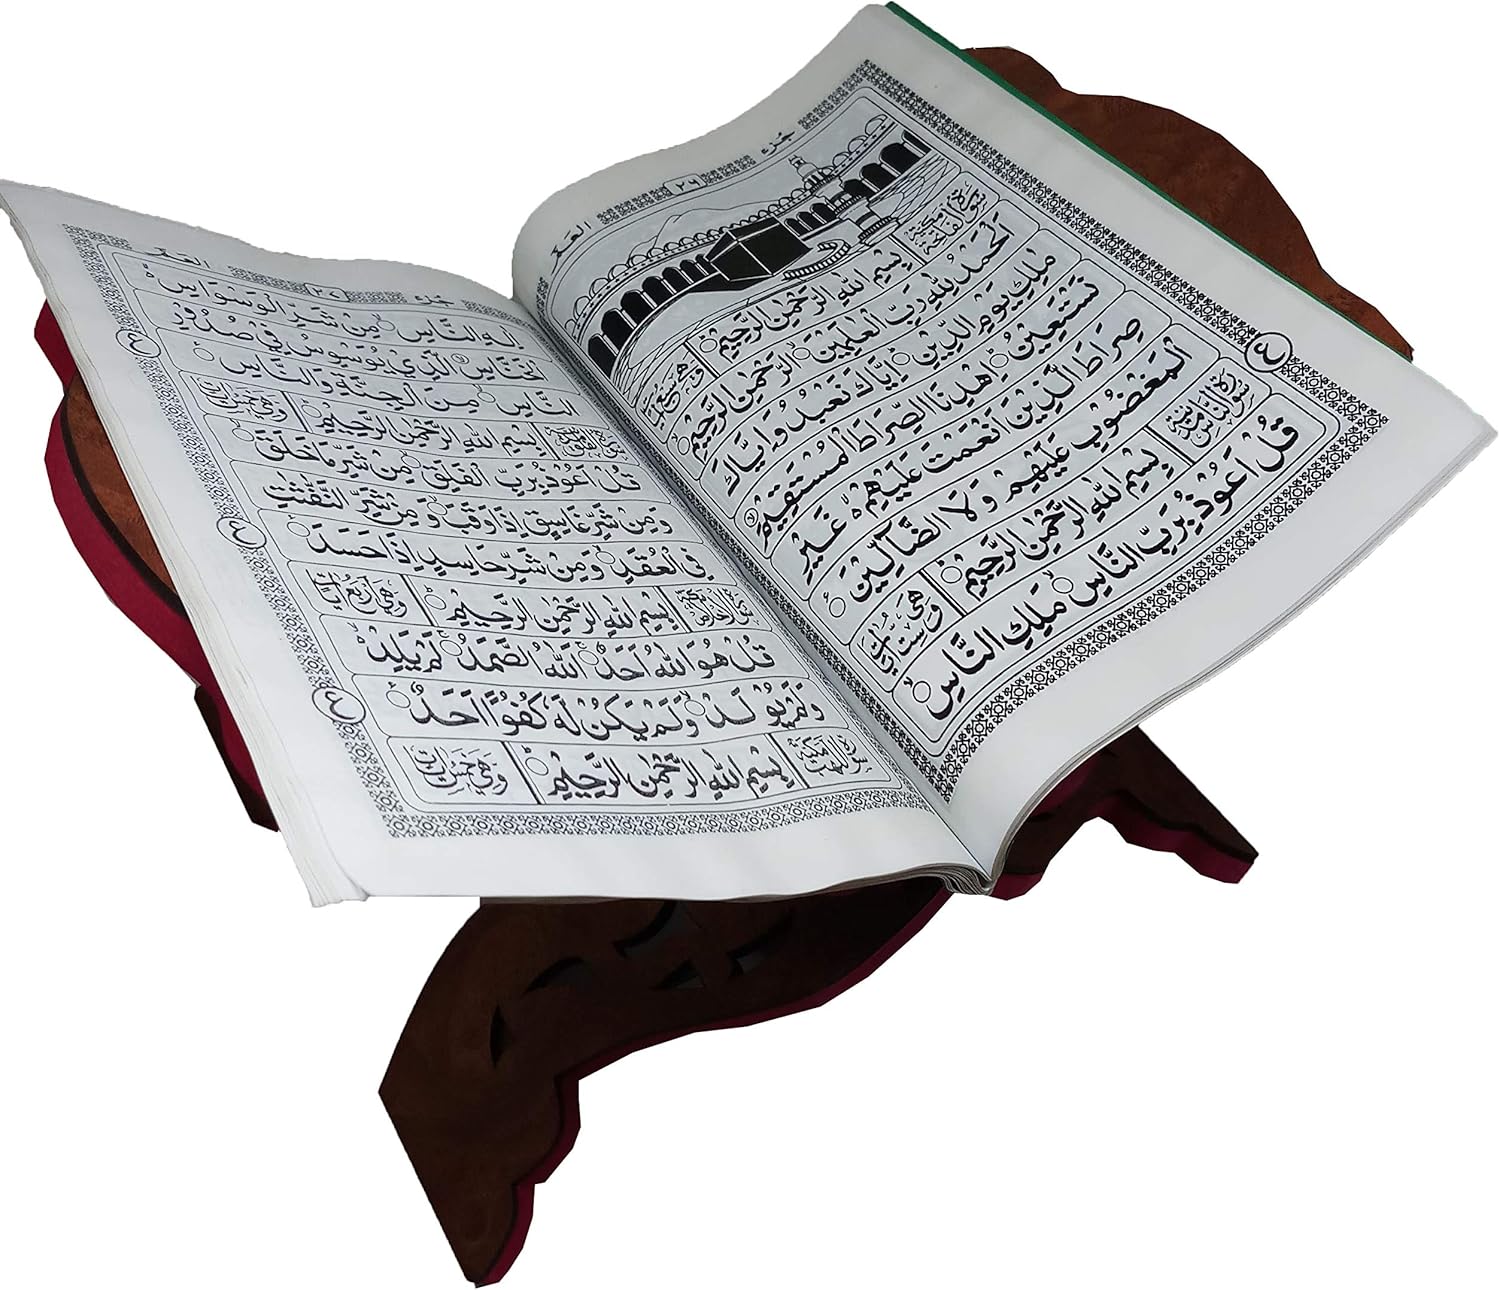 جزء
٢٦
الٓمّٓ
سورة الفاتحة مكية
بِسْمِ اللهِ الرَّحْمٰنِ الرَّحِيْمِ
وهي سبع
اَلْحَمْدُ لِلّٰهِ رَبِّ الْعٰلَمِيْنَ الرَّحْمٰنِ الرَّحِيْمِ
مٰلِكِ يَوْمِ الدِّيْنِ اِيَّاكَ نَعْبُدُ وَاِيَّاكَ
نَسْتَعِيْنُ اِهْدِنَا الصِّرَاطَ الْمُسْتَقِيْمَ
صِرَاطَ الَّذِيْنَ اَنْعَمْتَ عَلَيْهِمْ غَيْرِ
الْمَغْضُوْبِ عَلَيْهِمْ وَلَا الضَّآلِّيْنَ
سورة الناس
بِسْمِ اللهِ الرَّحْمٰنِ الرَّحِيْمِ
وهي ست ايات
قُلْ اَعُوْذُ بِرَبِّ النَّاسِ مَلِكِ النَّاسِ
جزء
٢٧
اِلٰهِ النَّاسِ مِنْ شَرِّ الْوَسْوَاسِ
الْخَنَّاسِ الَّذِيْ يُوَسْوِسُ فِيْ صُدُوْرِ
النَّاسِ مِنَ الْجِنَّةِ وَالنَّاسِ
بِسْمِ اللهِ الرَّحْمٰنِ الرَّحِيْمِ
وهي خمس ايات
قُلْ اَعُوْذُ بِرَبِّ الْفَلَقِ مِنْ شَرِّ مَا خَلَقَ
وَمِنْ شَرِّ غَاسِقٍ اِذَا وَقَبَ وَمِنْ شَرِّ النَّفّٰثٰتِ
فِي الْعُقَدِ وَمِنْ شَرِّ حَاسِدٍ اِذَا حَسَدَ
بِسْمِ اللهِ الرَّحْمٰنِ الرَّحِيْمِ
وهي اربع ايات
قُلْ هُوَ اللهُ اَحَدٌ اَللهُ الصَّمَدُ لَمْ يَلِدْ
وَلَمْ يُوْلَدْ وَلَمْ يَكُنْ لَهٗ كُفُوًا اَحَدٌ
بِسْمِ اللهِ الرَّحْمٰنِ الرَّحِيْمِ
وهي خمس ايات